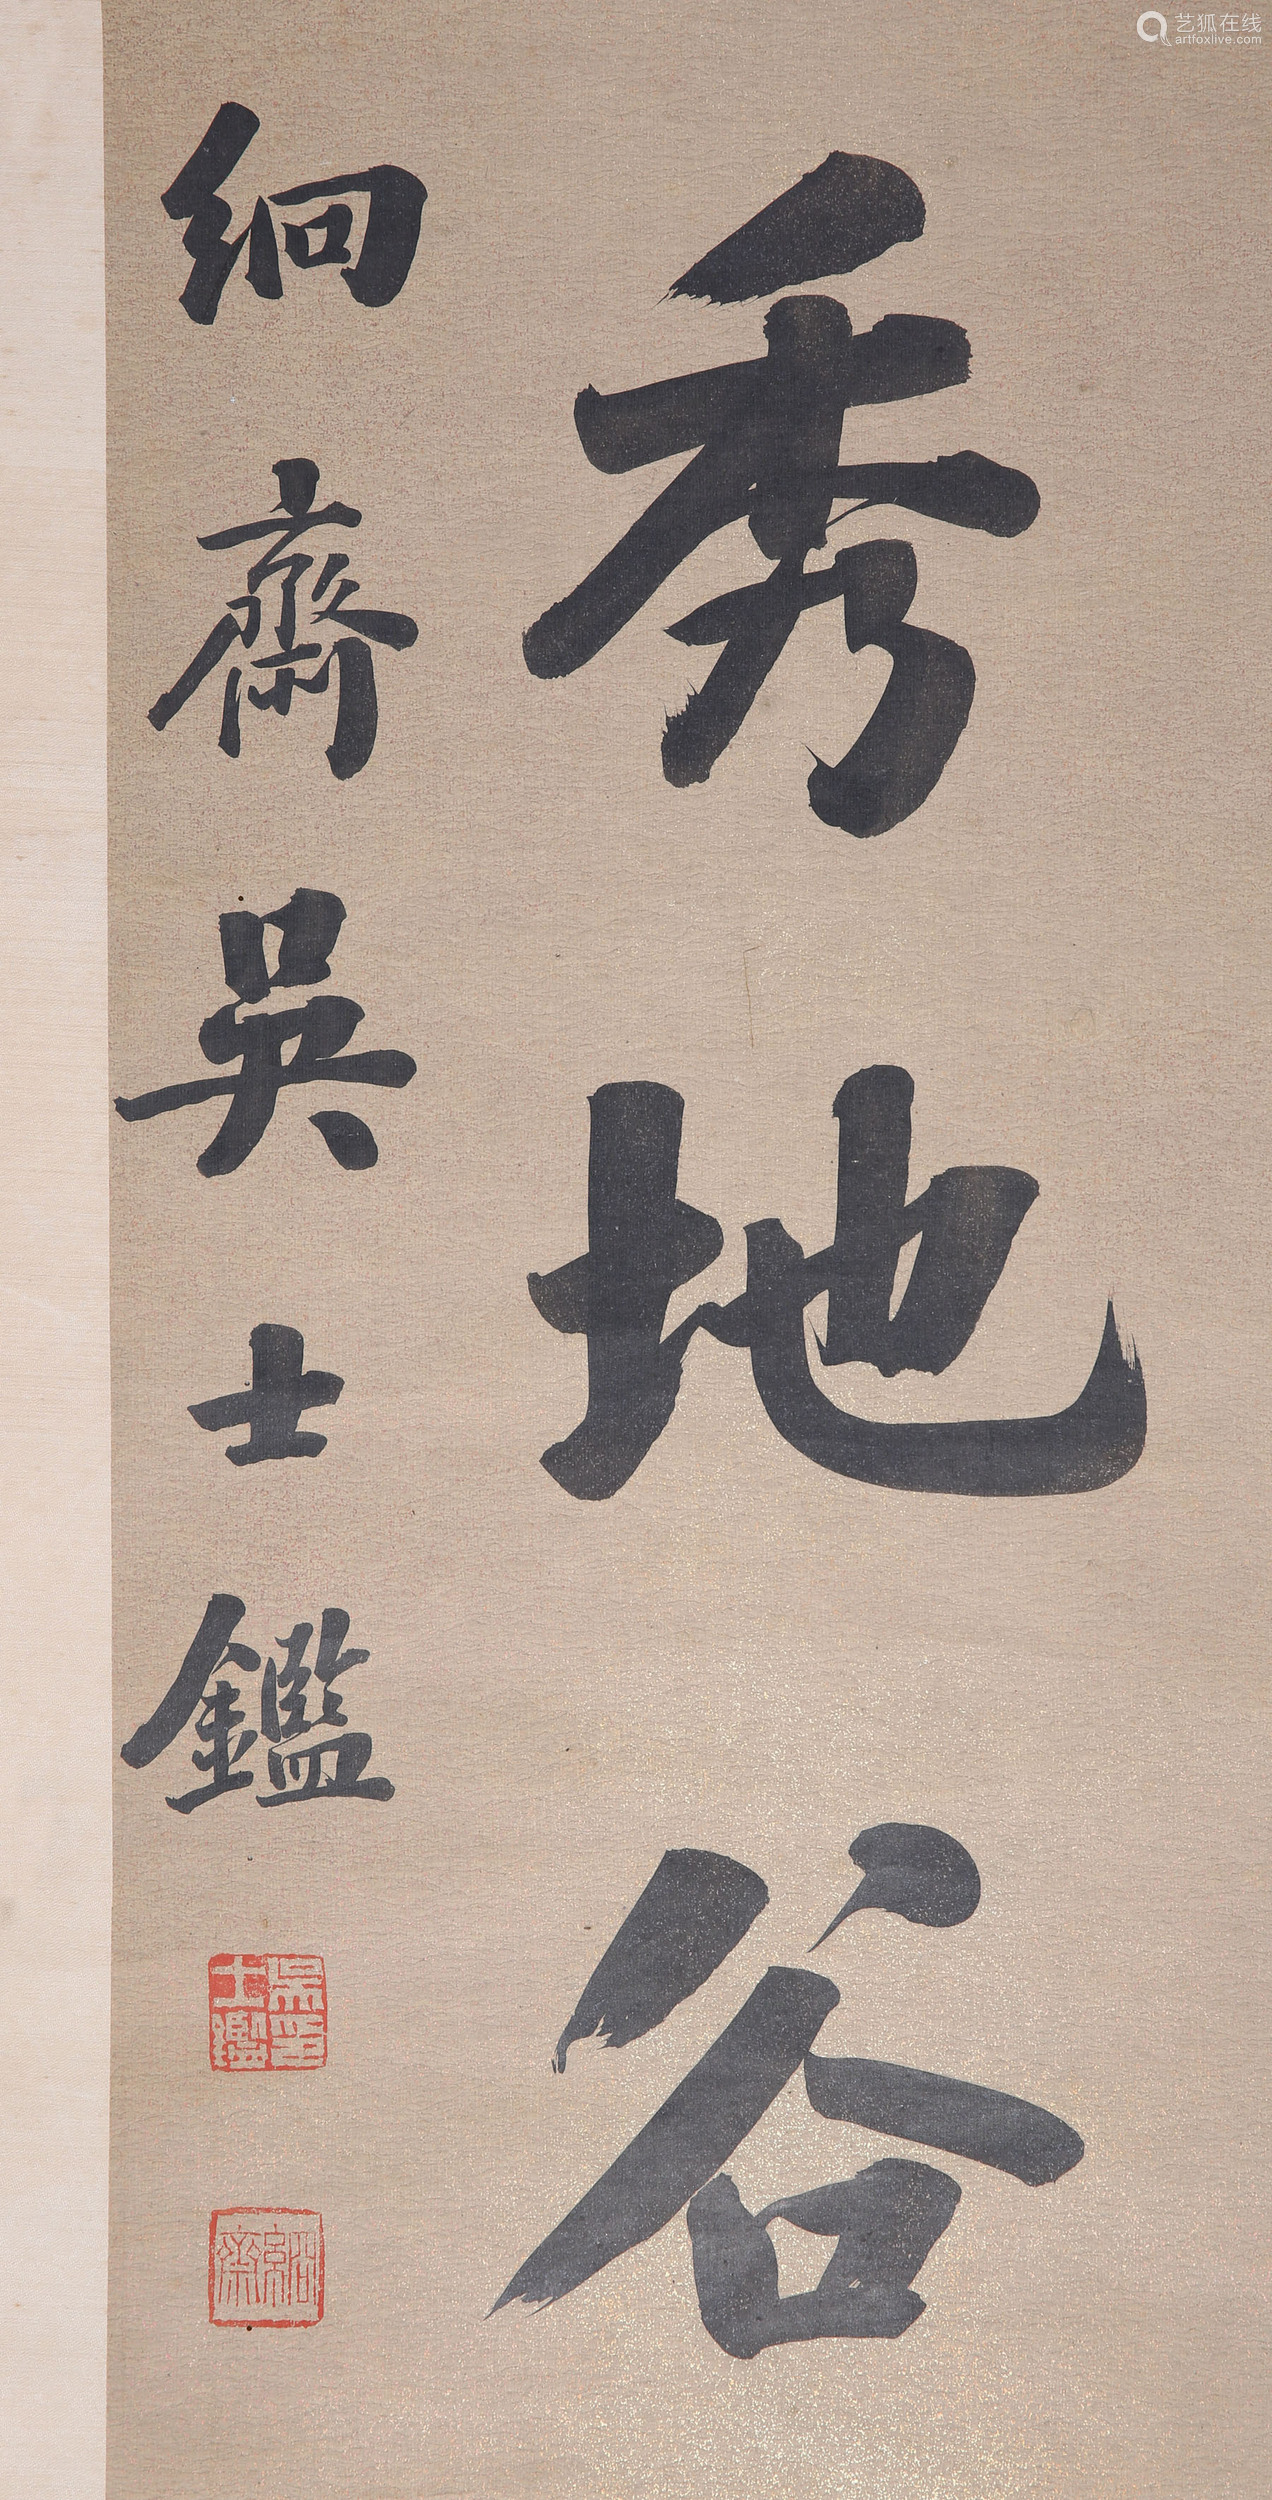 艺狐在线
artfoxlive.com
秀地谷
絅齋吳士鑑
吳士鑑印
絅齋